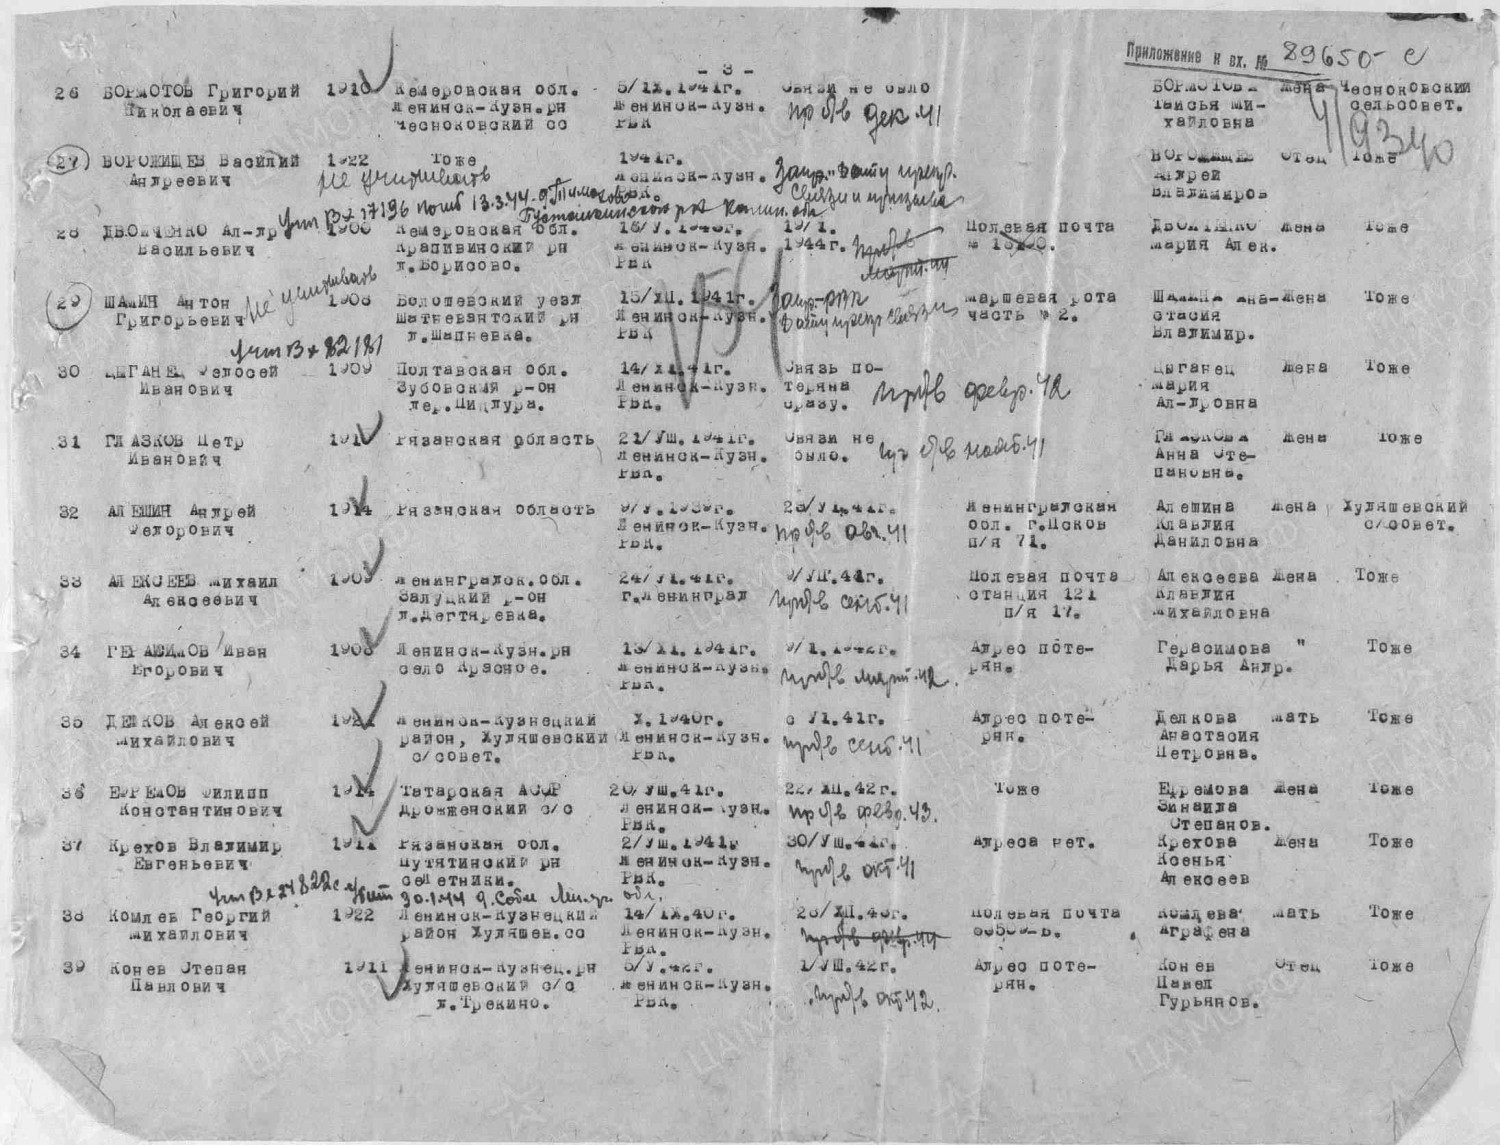 Приложение к вх. № 89650 с
- 3 -
26 БОРМОТОВ Григорий 1910 Кемеровская обл. 5/IX.1941г. Связи не было БОРМОТОВА жена Чесноковский
Николаевич Ленинск-Кузн.рн Ленинск-Кузн. пр б/в дек.41 Таисья Ми- сельсовет.
Чесноковский сс РВК хайловна
4/9340
27 ВОРОЖИЩЕВ Василий 1922 Тоже 1941г. ВОРОЖИЩЕВ Отец Тоже
Андреевич не учитывать Ленинск-Кузн. Андрей
РВК. Владимиров
связи и
учт Вх 17196 погиб 13.3.44
28 Ал-др 1900 Кемеровская обл. 1940г. 19/1. Полевая почта жена Тоже
Васильевич Крапивинский рн Ленинск-Кузн. 1944г. пр б/в Мария Алек.
д.Борисово. РВК март.44
29 ШАМИН Антон 1908 15/XII.1941г. Запр-РВК Маршевая рота Жена Тоже
Григорьевич не учитывать Ленинск-Кузн. связи часть № 2. стасия
д.Шапневка. РВК Владимир.
учт Вх 82181
30 ЦЫГАНЕЦ Федосей 1909 Полтавская обл. 14/XI.41г. Связь по- Цыганец Жена Тоже
Иванович Зубовский р-он Ленинск-Кузн. теряна пр б/в февр.42 Мария
РВК. сразу. Ал-дровна
31 ГЛАЗКОВ Петр Рязанская область 21/УШ.1941г. Связи не ГЛАЗКОВА Жена Тоже
Иванович Ленинск-Кузн. было. пр б/в нояб.41 Анна Сте-
РВК. пановна.
32 АЛЕШИН Андрей 1914 Рязанская область 9/У.1939г. Ленинградская Алешина Жена Хуляшевский
Федорович Ленинск-Кузн. пр б/в авг.41 обл. г.Псков Клавдия с/совет.
РВК. п/я 71. Даниловна
33 АЛЕКСЕЕВ Михаил 1909 Ленинградск.обл. 24/У1.41г. 9/УП.41г. Полевая почта Алексеева Жена Тоже
Алексеевич Залуцкий р-он г.Ленинград пр б/в сент.41 станция 121 Клавдия
д.Дегтяревка. п/я 17. Михайловна
34 ГЕРАСИМОВ Иван 1908 Ленинск-Кузн.рн 13/XI.1941г. 9/1.1942г. Адрес поте- Герасимова " Тоже
Егорович село Красное. Ленинск-Кузн. пр б/в март.42. рян. Дарья Андр.
РВК.
35 ДЕЛКОВ Алексей 1921 Ленинск-Кузнецкий X.1940г. с У1.41г. Адрес поте- Делкова мать Тоже
Михайлович район, Хуляшевский Ленинск-Кузн. пр б/в сент.41 рян. Анастасия
с/совет. РВК. Петровна.
36 ЕФРЕМОВ Филипп 1914 Татарская АССР 20/УШ.41г. 22/XII.42г. Тоже Ефремова Жена Тоже
Константинович Дрожженский с/с Ленинск-Кузн. пр б/в февр.43. Зинаида
РВК. Степанов.
37 Крехов Владимир 1911 Рязанская обл. 2/УШ.1941г 30/УШ.41г. Адреса нет. Крехова Жена Тоже
Евгеньевич Путятинский рн Ленинск-Кузн. пр б/в окт.41 Ксенья
РВК. Алексеев
учт Вх 27822с убит 30.1.44 обл.
38 Комлев Георгий 1922 Ленинск-Кузнецкий 14/IX.40г. 26/XII.43г. Полевая почта Комлева мать Тоже
Михайлович район Хуляшев.сс Ленинск-Кузн. Аграфена
РВК.
39 Конев Степан 1911 Ленинск-Кузнец.рн 5/У.42г. 1/УШ.42г. Адрес поте- Конев Отец Тоже
Павлович Хуляшевский с/с Ленинск-Кузн. пр б/в окт.42. рян. Павел
д.Трекино. РВК. Гурьянов.